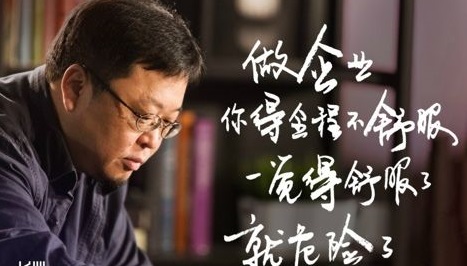 做企业
你得全程不舒服
一觉得舒服了
就危险了